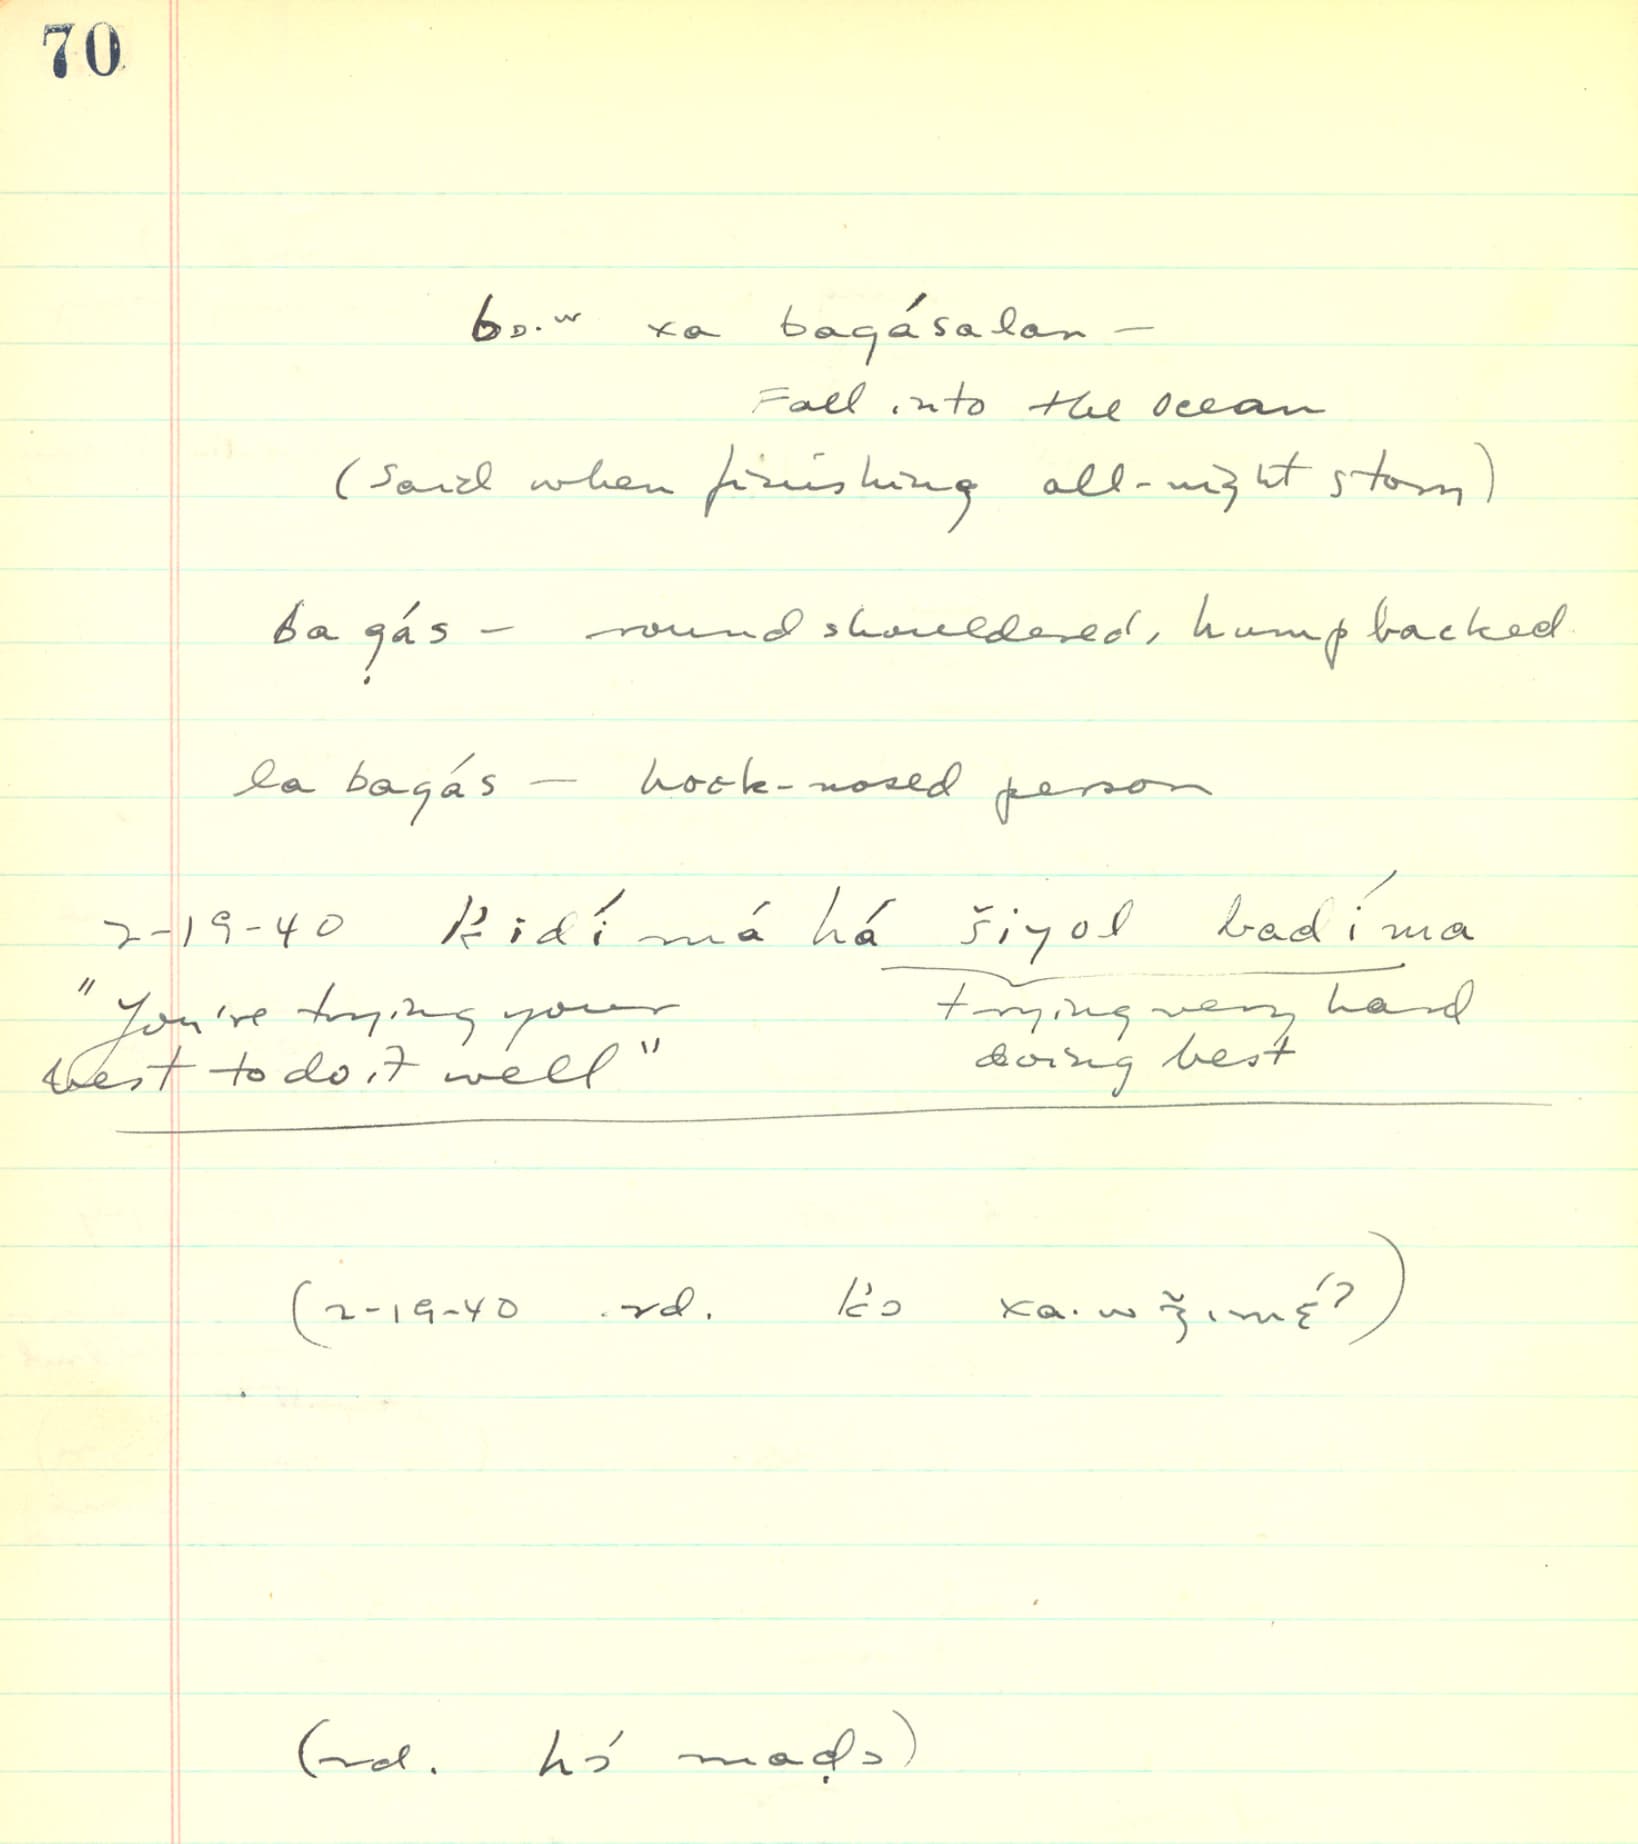 70
bɔ·ʷ xa bagásalan —
Fall into the ocean
(Said when finishing all-night story)
bag̣ás — round shouldered, humpbacked
la bagás — hook-nosed person
2-19-40 k̓idí má há šiyol badíma
"You're trying your
best to do it well"
trying very hard
doing best
(2-19-40 rd. k̓ɔ xa·wǯimɛ́ʔ)
(rd. hɔ́ maḍɔ)